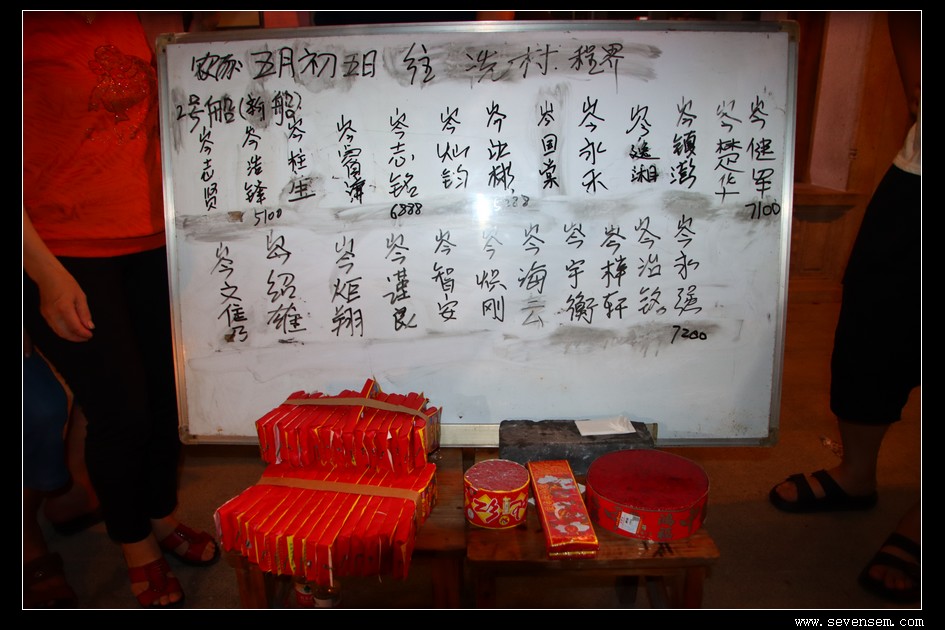 农历 五月初五日 往 冼村 程界
2号船(新船)
岑志贤
岑浩锋
5100
岑柱生
岑志铭
6888
岑灿钧
岑国棠
岑永禾
岑镇澎
岑楚华
岑健军
7100
岑文佳
岑绍雄
岑炬翔
岑谨良
岑智安
岑炽刚
岑海云
岑宇衡
岑梓轩
岑治铭
岑永强
7200
www.sevensem.com